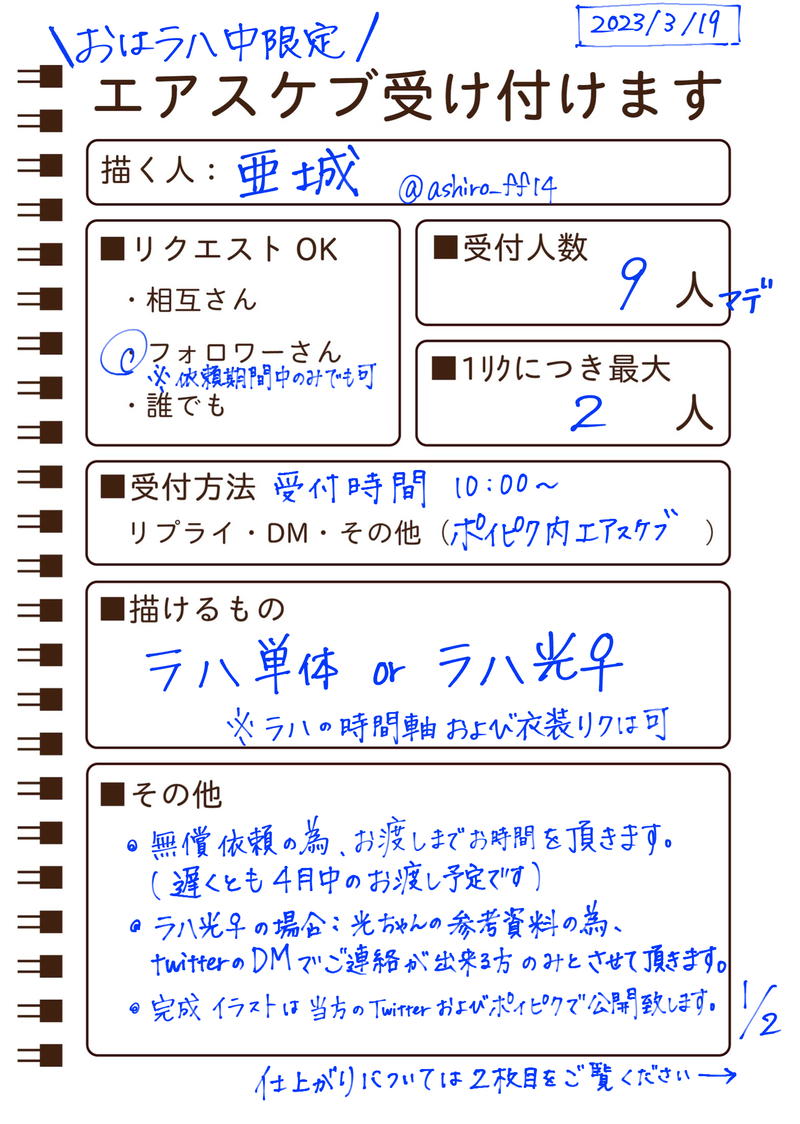 2023/3/19
\おはラハ中限定/
エアスケブ受け付けます
描く人： 亜城 @ashiro_ff14
■リクエスト OK
・相互さん
◎フォロワーさん
※依頼期間中のみでも可
・誰でも
■受付人数
9 人マデ
■1ﾘｸにつき最大
2 人
■受付方法 受付時間 10:00～
リプライ・DM・その他（ポイピク内エアスケブ）
■描けるもの
ラハ単体 or ラハ光♀
※ラハの時間軸および衣装リクは可
■その他
◎無償依頼の為、お渡しまでお時間を頂きます。
(遅くとも4月中のお渡し予定です)
◎ラハ光♀の場合：光ちゃんの参考資料の為、
twitterのDMでご連絡が出来る方のみとさせて頂きます。
◎完成イラストは当方のTwitterおよびポイピクで公開致します。
1/2
仕上がりについては2枚目をご覧ください→